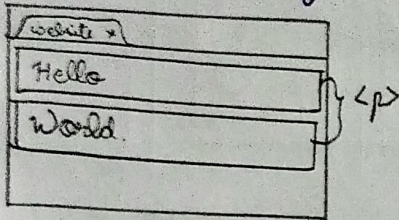 website x
Hello
<p>
World.